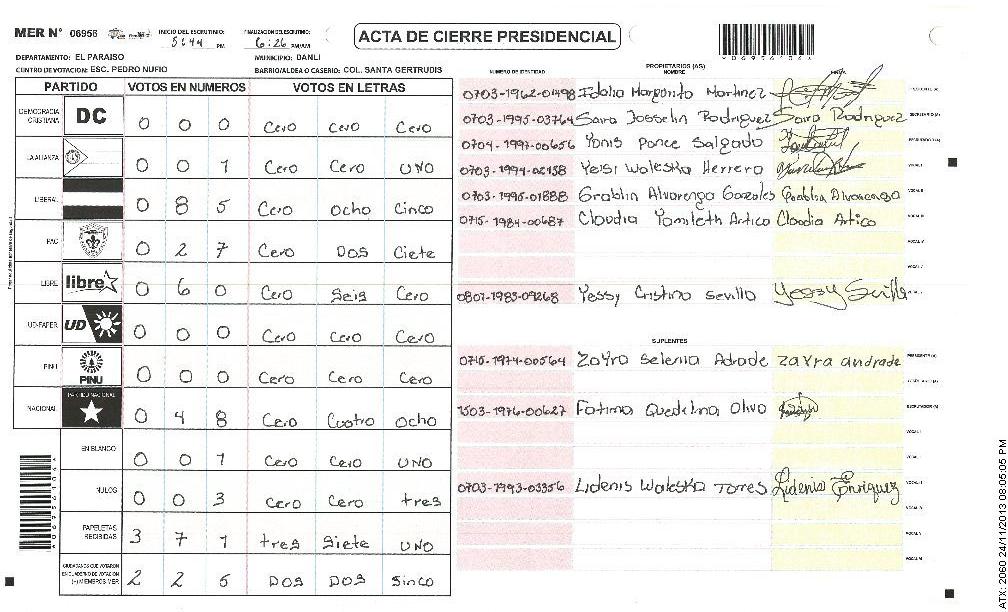 MER N° 06956 INICIO DEL ESCRUTINIO: 5:44 PM FINALIZACION DEL ESCRUTINIO: 6:26 PM/AM ACTA DE CIERRE PRESIDENCIAL
DEPARTAMENTO: EL PARAISO MUNICIPIO: DANLI
CENTRO DE VOTACION: ESC. PEDRO NUFIO BARRIO/ALDEA O CASERIO: COL. SANTA GERTRUDIS
PARTIDO VOTOS EN NUMEROS VOTOS EN LETRAS
DEMOCRACIA CRISTIANA DC 0 0 0 Cero Cero Cero
LA ALIANZA 0 0 1 Cero Cero UNO
LIBERAL 0 8 5 Cero Ocho Cinco
PAC 0 2 7 Cero DOS Ciete
LIBRE libre 0 6 0 Cero Seis Cero
UD-FAPER UD 0 0 0 Cero Cero Cero
PINU PINU 0 0 0 Cero Cero Cero
NACIONAL PARTIDO NACIONAL 0 4 8 Cero Cuatro Ocho
EN BLANCO 0 0 1 Cero Cero UNO
NULOS 0 0 3 Cero Cero tres
PAPELETAS RECIBIDAS 3 7 1 tres Siete UNO
CIUDADANOS QUE VOTARON EN CUADERNO DE VOTACION (+) MIEMBROS MER 2 2 5 DOS DOS Sinco
PROPIETARIOS (AS)
NUMERO DE IDENTIDAD NOMBRE FIRMA
0703-1962-01498 Idalia Margarita Martinez PRESIDENTE (A)
0703-1995-03764 Sara Josselin Rodriguez Sara Rodriguez SECRETARIO (A)
0704-1997-00656 Yonis Ponce Salgado ESCRUTADOR (A)
0703-1994-02158 Yeisi Waleska Herrero VOCAL I
0703-1995-01888 Grablin Alvarenga Gonzales Grablin Alvarenga VOCAL II
0715-1984-00687 Claudia Yamileth Artica Claudia Artica VOCAL III
VOCAL IV
VOCAL V
0801-1983-09268 Yessy Cristina Sevilla Yessy Sevilla
SUPLENTES
0715-1974-00564 Zayra Selenia Adrade zayra andrade PRESIDENTE (A)
SECRETARIO (A)
1503-1976-00627 Fatima Quedelina Olivo ESCRUTADOR (A)
VOCAL I
VOCAL II
0703-1993-03356 Lidenis Waleska Torres Lidenis Enriquez VOCAL III
VOCAL IV
VOCAL V
VOCAL VI
ATX: 2060 24/11/2013 08:05:05 PM